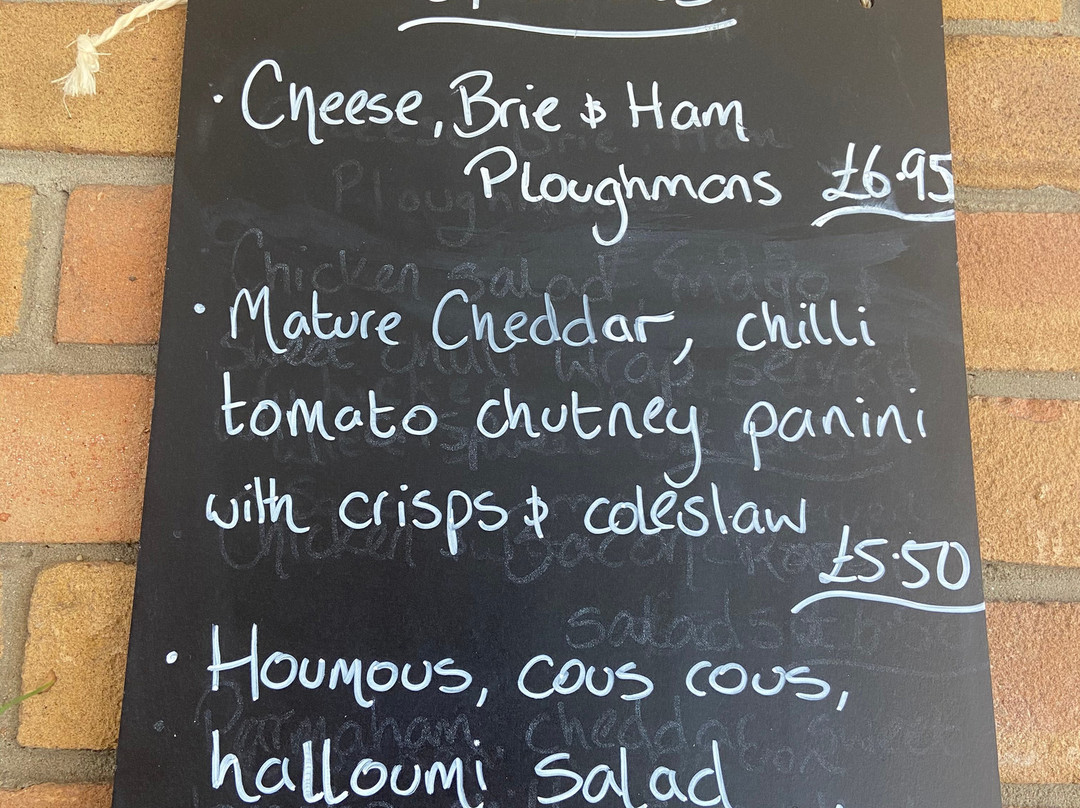 · Cheese, Brie & Ham
Ploughmans £6.95
· Mature Cheddar, chilli
tomato chutney panini
with crisps & coleslaw
£5.50
· Houmous, cous cous,
halloumi salad